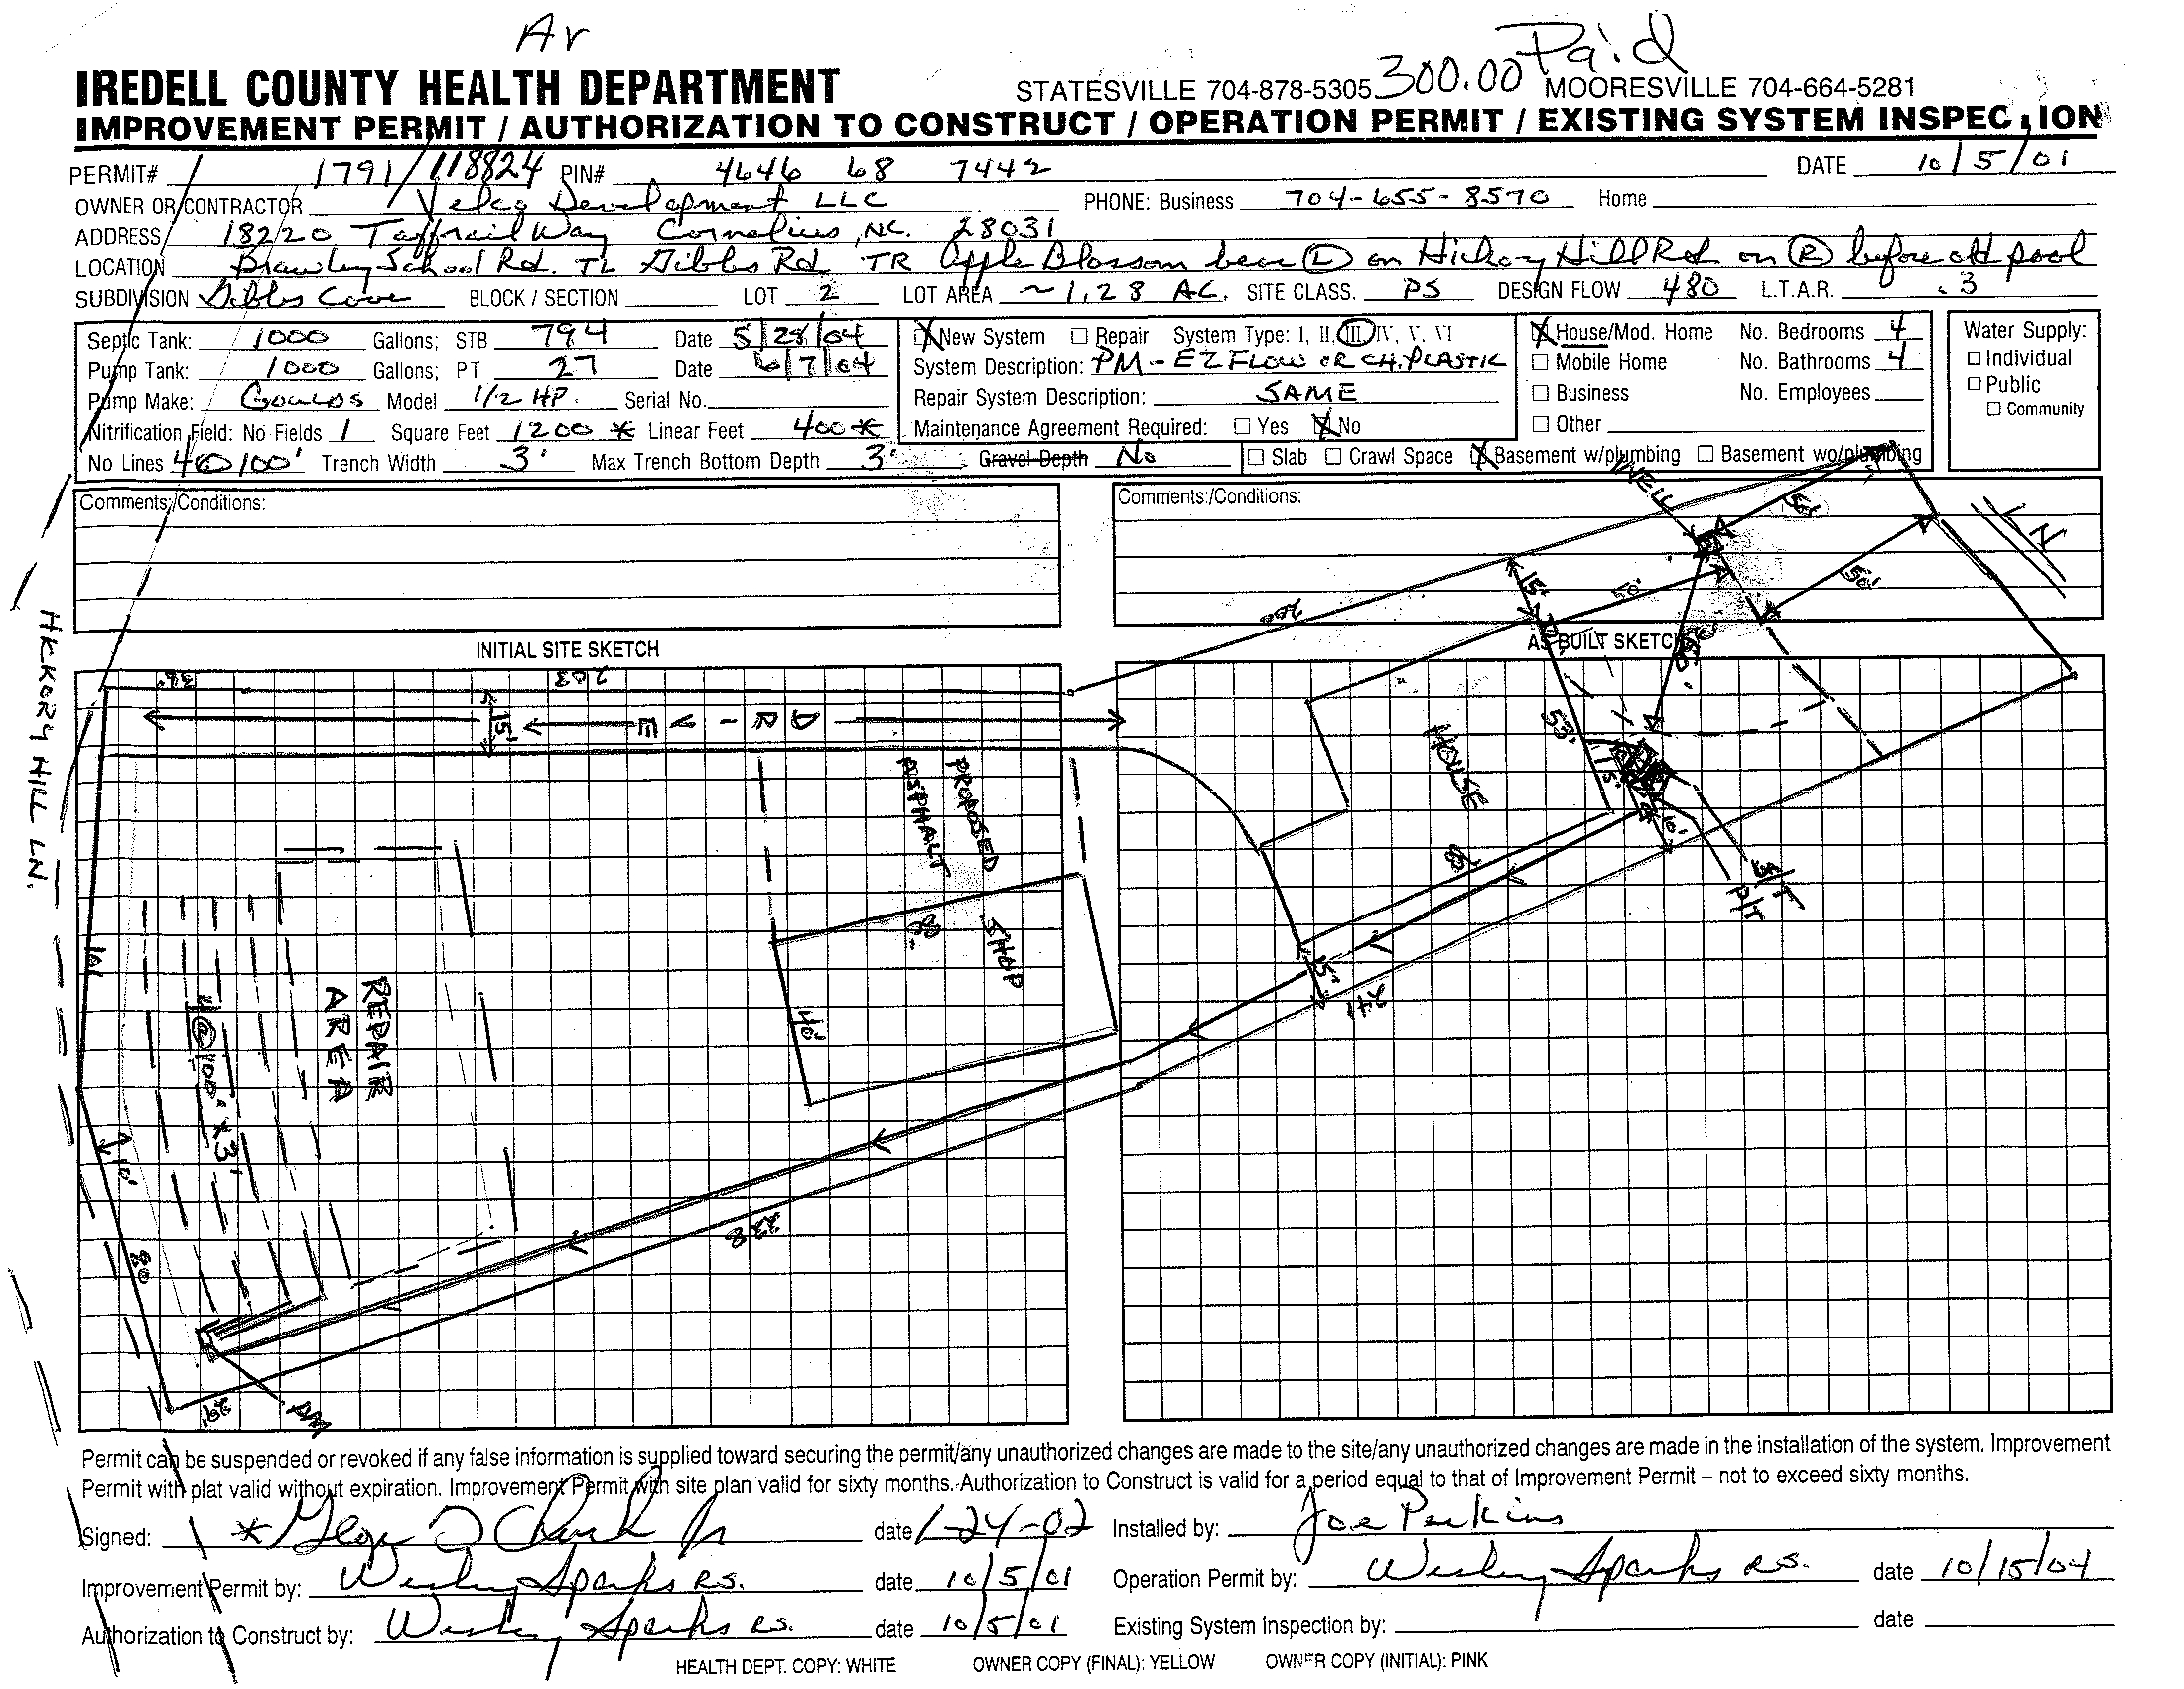 Ar
300.00 Paid
IREDELL COUNTY HEALTH DEPARTMENT STATESVILLE 704-878-5305 MOORESVILLE 704-664-5281
IMPROVEMENT PERMIT / AUTHORIZATION TO CONSTRUCT / OPERATION PERMIT / EXISTING SYSTEM INSPEC ION
PERMIT# 1791/118824 PIN# 4646 68 7442 DATE 10/5/01
OWNER OR CONTRACTOR Development LLC PHONE: Business 704-655-8570 Home
ADDRESS 18220 Taffrail Way Cornelius, NC. 28031
LOCATION Brawley School Rd. TL Gibbs Rd TR Apple Blossom bear (L) on Hickory Hill Rd on (R) before old pool
SUBDIVISION Gibbs Cove BLOCK / SECTION LOT 2 LOT AREA ~1.28 AC. SITE CLASS. PS DESIGN FLOW 480 L.T.A.R. .3
Septic Tank: 1000 Gallons; STB 794 Date 5/28/04 X New System □ Repair System Type: I, II, III, IV, V, VI X House/Mod. Home No. Bedrooms 4 Water Supply:
Pump Tank: 1000 Gallons; PT 27 Date 6/7/04 System Description: PM-EZ FLOW OR CH. PLASTIC □ Mobile Home No. Bathrooms 4 □ Individual
Pump Make: Goulds Model 1/2 HP. Serial No. Repair System Description: SAME □ Business No. Employees □ Public
Nitrification Field: No Fields 1 Square Feet 1200 * Linear Feet 400 * Maintenance Agreement Required: □ Yes X No □ Other □ Community
No Lines 4@100' Trench Width 3' Max Trench Bottom Depth 3' Gravel Depth No □ Slab □ Crawl Space X Basement w/plumbing □ Basement wo/plumbing
Comments:/Conditions: Comments:/Conditions:
WELL
50'
N
50'
15'
50'
200
HICKORY HILL LN.
INITIAL SITE SKETCH AS BUILT SKETCH
203
15'
DRIVE
PROPOSED
ASPHALT
HOUSE
53'
15'
10'
S/T
P/T
80'
SHOP
40'
15'
101
REPAIR
AREA
4@100' x 3'
10'
80
Permit can be suspended or revoked if any false information is supplied toward securing the permit/any unauthorized changes are made to the site/any unauthorized changes are made in the installation of the system. Improvement
Permit with plat valid without expiration. Improvement Permit with site plan valid for sixty months. Authorization to Construct is valid for a period equal to that of Improvement Permit – not to exceed sixty months.
Signed: * date 1-24-02 Installed by: Joe Perkins
Improvement Permit by: Wesley Sparks RS. date 10/5/01 Operation Permit by: Wesley Sparks RS. date 10/15/04
Authorization to Construct by: Wesley Sparks RS. date 10/5/01 Existing System Inspection by: date
HEALTH DEPT. COPY: WHITE OWNER COPY (FINAL): YELLOW OWNER COPY (INITIAL): PINK